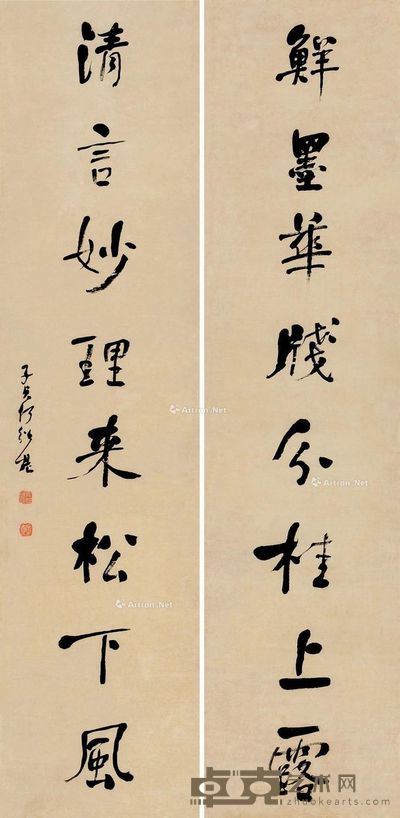 鮮墨華牋分桂上露
清言妙理来松下風
子貞何紹基
Artron.Net
Artron.Net
Artron.Net
Artron.Net
卓克艺术网
zhuokearts.com